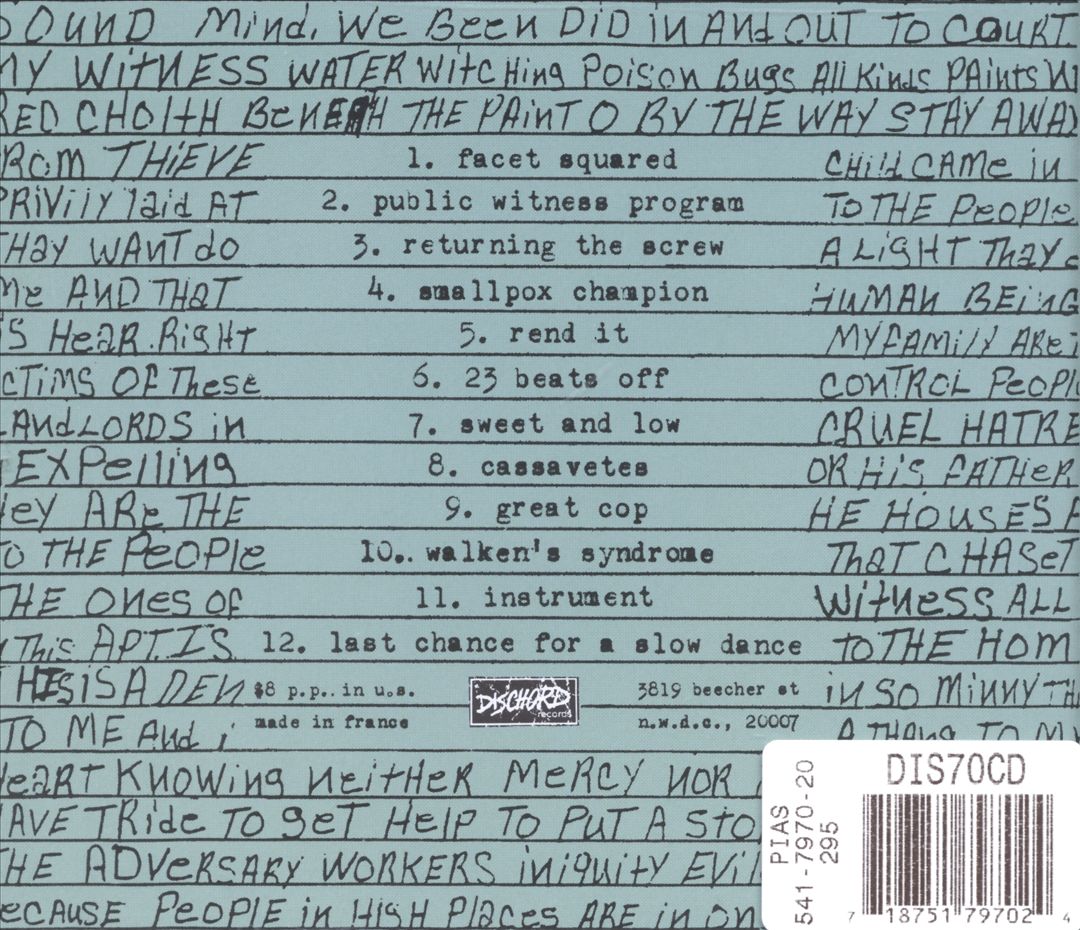 OUND Mind. We Been DiD in And OUT TO COURT
MY WitNESS WATER WitcHing Poison Bugs All Kinds PAints
RED CHOItH BENEATH THE PAinT O BY THE WAY STAY AWAY
ROM THiEVE 1. facet squared CHild CAMe in
PRiVilY laid AT 2. public witness program To THE PeoPle
THAY WANT do 3. returning the screw A LiGHT THAY
Me AND THAT 4. smallpox champion HUMAN BEiNG
S HeaR. RiGHT 5. rend it MY FAMilY ARE
CTiMS OF These 6. 23 beats off CONTROL PeoPl
LANdLORDS in 7. sweet and low CRUEL HATRE
EXPelling 8. cassavetes OR HiS FATHER
HeY ARe THE 9. great cop HE HOUSES
TO THE PeoPle 10.. walken's syndrome THaT CHASeT
THE ONes OF 11. instrument WitNeSS ALL
This APT. IS 12. last chance for a slow dance to THE HOM
THIS iS A DEN $8 p.p. in u.s. DISCHORD records 3819 beecher st in SO MiNNY TH
TO ME And i made in france n.w.d.c., 20007 A THANG TO MY
HeaRT KNOWing NeitHER MeRCY NOR
AVE TRide TO geT HelP TO PuT A Sto
THE ADVeRSARY WORKERS iniquitY EVil
eCAUSE PeoPlE in HIGH PlAceS ARE in on
DIS70CD
PIAS
541-7970-20
295
7 18751 79702 4